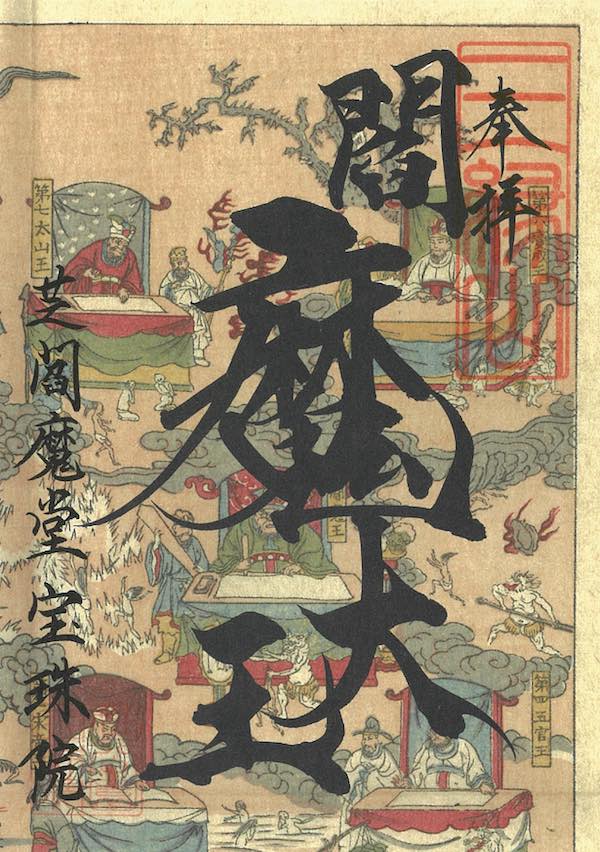 奉拝
三縁山
閻魔大王
第四五官王
第七太山王
芝閻魔堂宝珠院